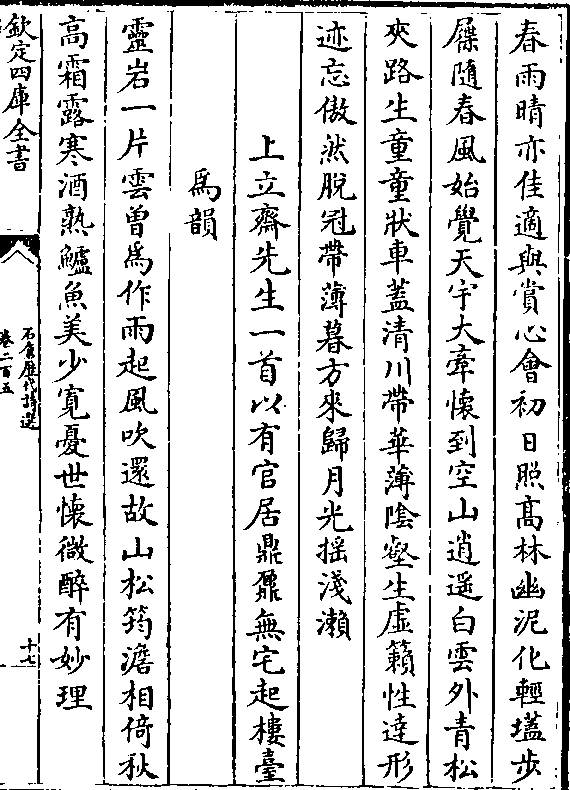 春雨晴亦佳適與賞心會初日照髙林幽泥化輕壒步
屧隨春風始覺天宇大牽懷到空山逍遥白雲外青松
夾路生童童狀車蓋清川帶華薄陰壑生虛籟性達形
迹忘傲然脫冠帶薄暮方來歸月光摇淺瀨
上立齋先生一首以有官居鼎鼐無宅起樓臺
為韻
靈岩一片雲曾為作雨起風吹還故山松筠澹相倚秋
高霜露寒酒熟鱸魚美少寛憂世懷微醉有妙理
欽定四庫全書
石倉歷代詩選
卷二百五
十七